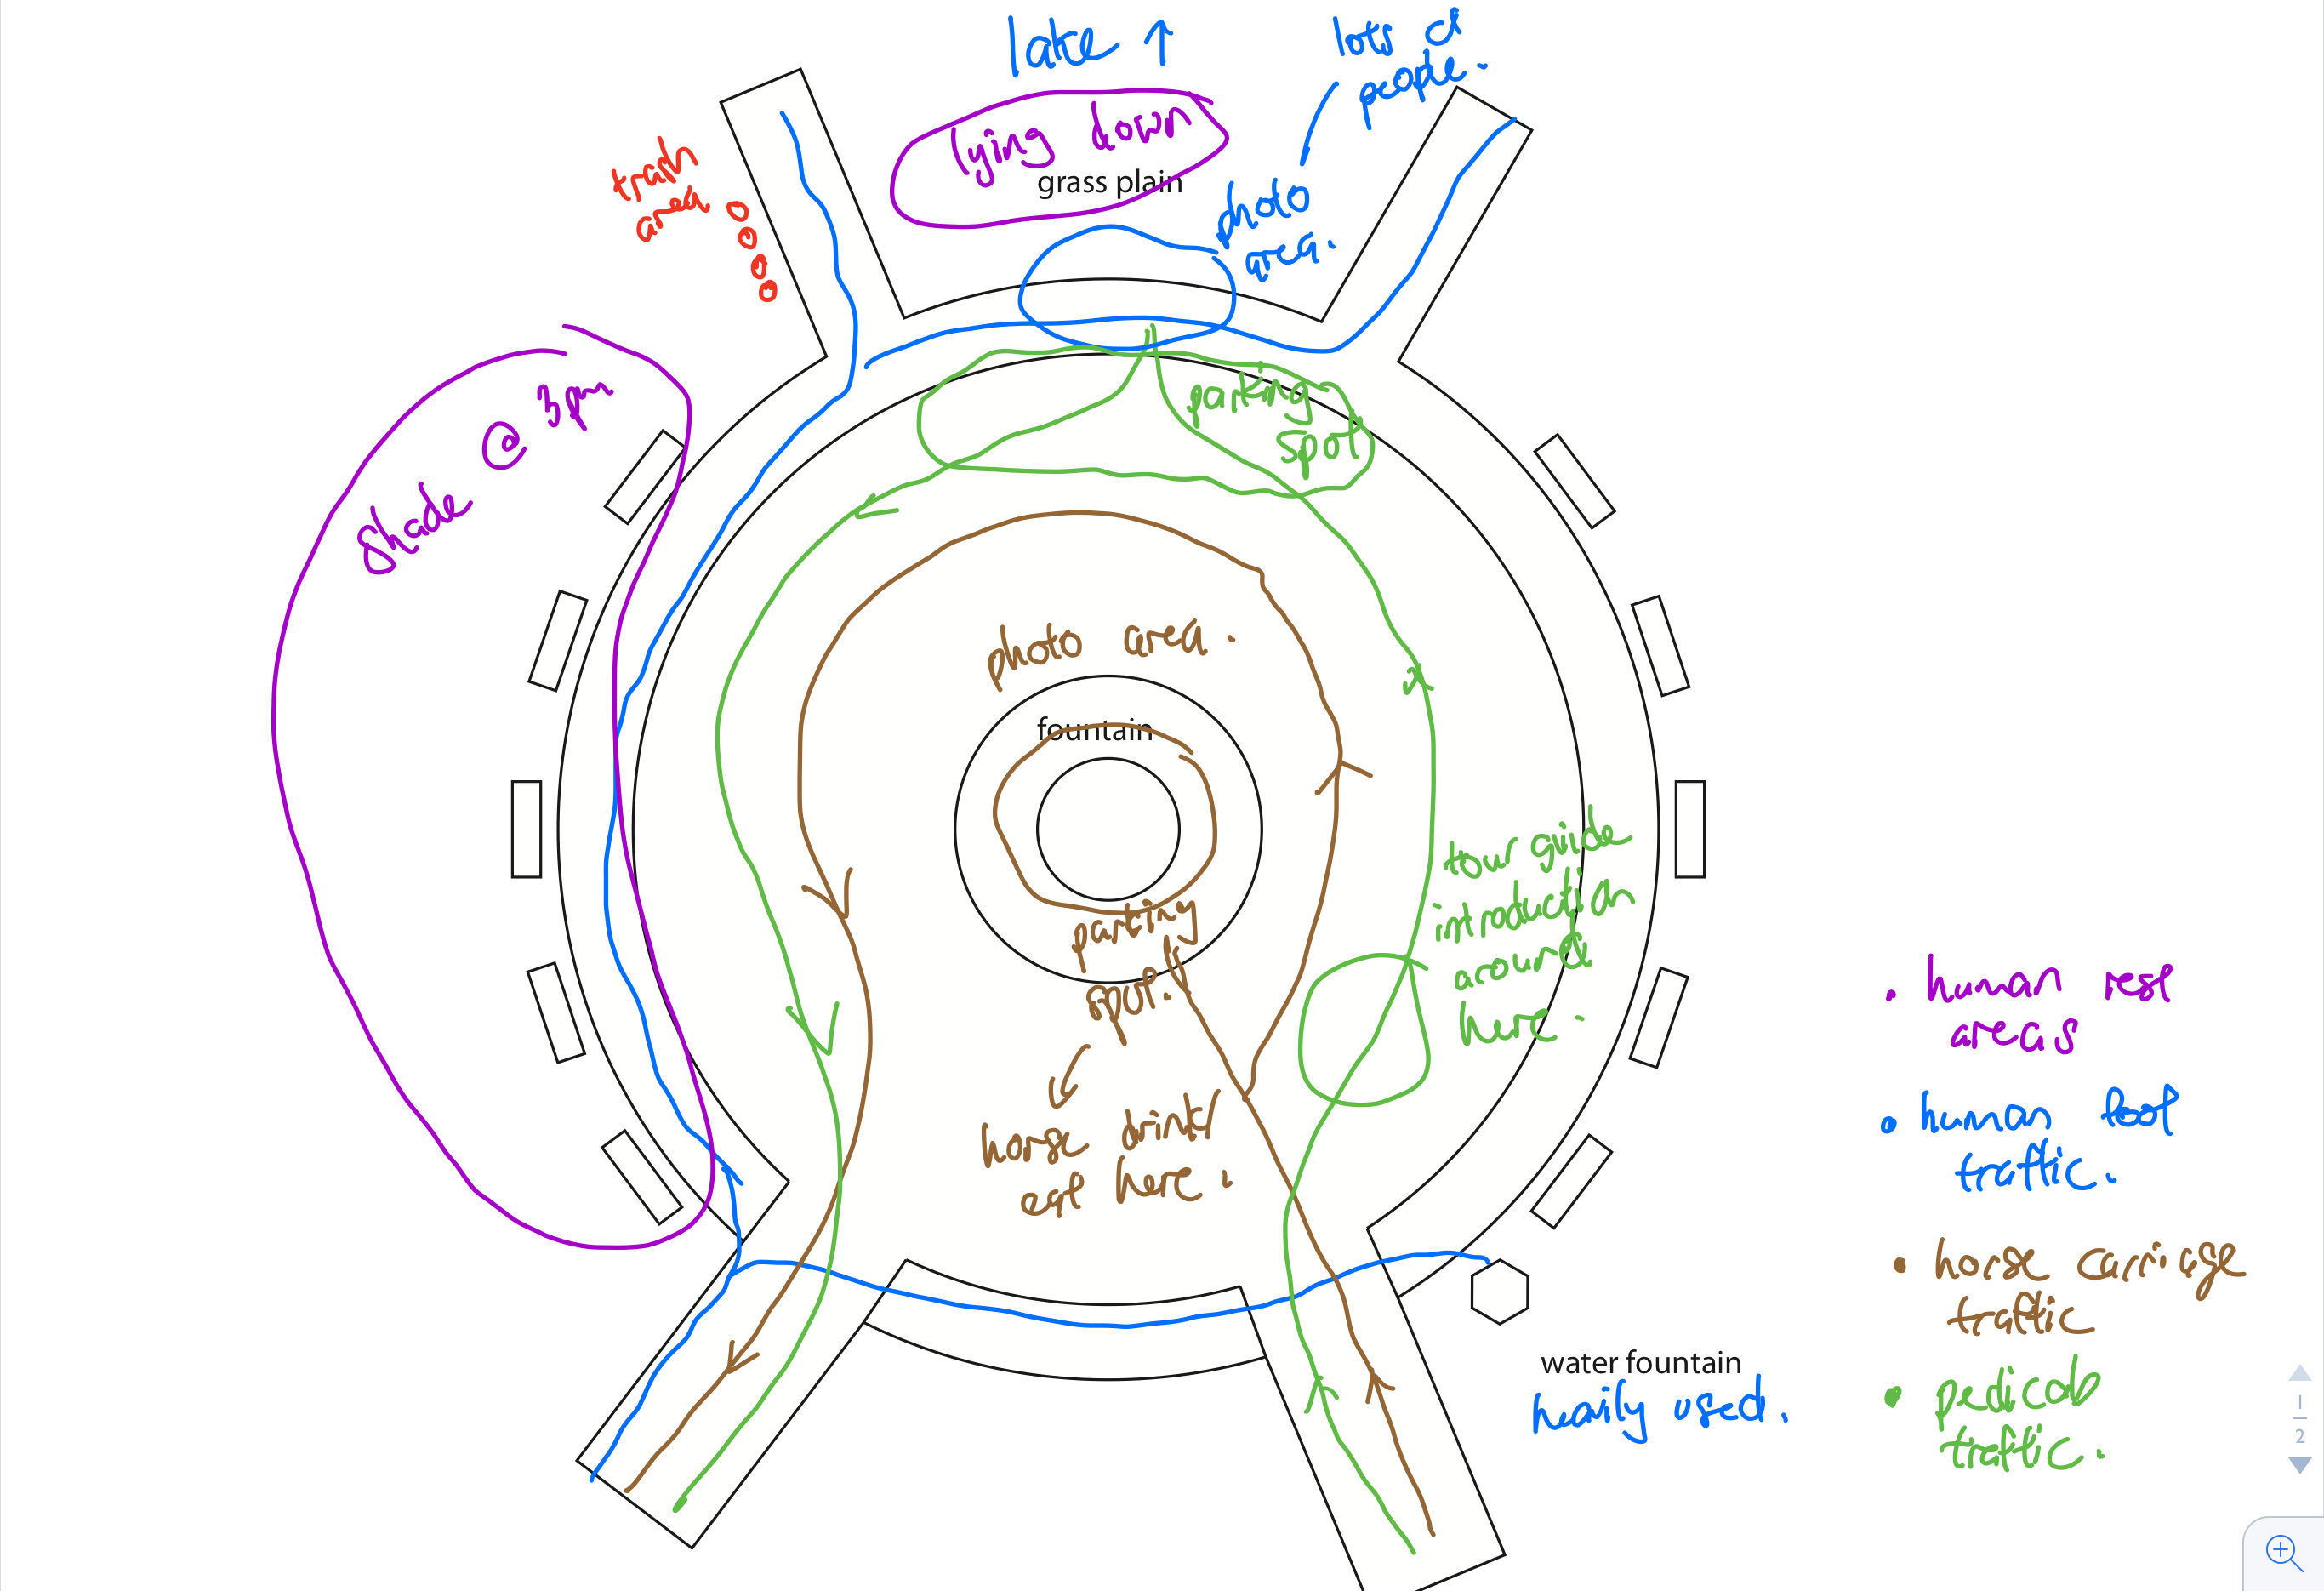 lake ↑
lots of
people.
lying down
grass plain
trash
area
photo
area.
shade @ 3pm
parking
spot
photo area.
fountain
parking
spot.
horse drink
at here.
tour guide
introduction
around
here.
water fountain
heavily used.
• human rest
areas
• human foot
traffic.
• horse carriage
traffic
• pedicab
traffic.
1
2